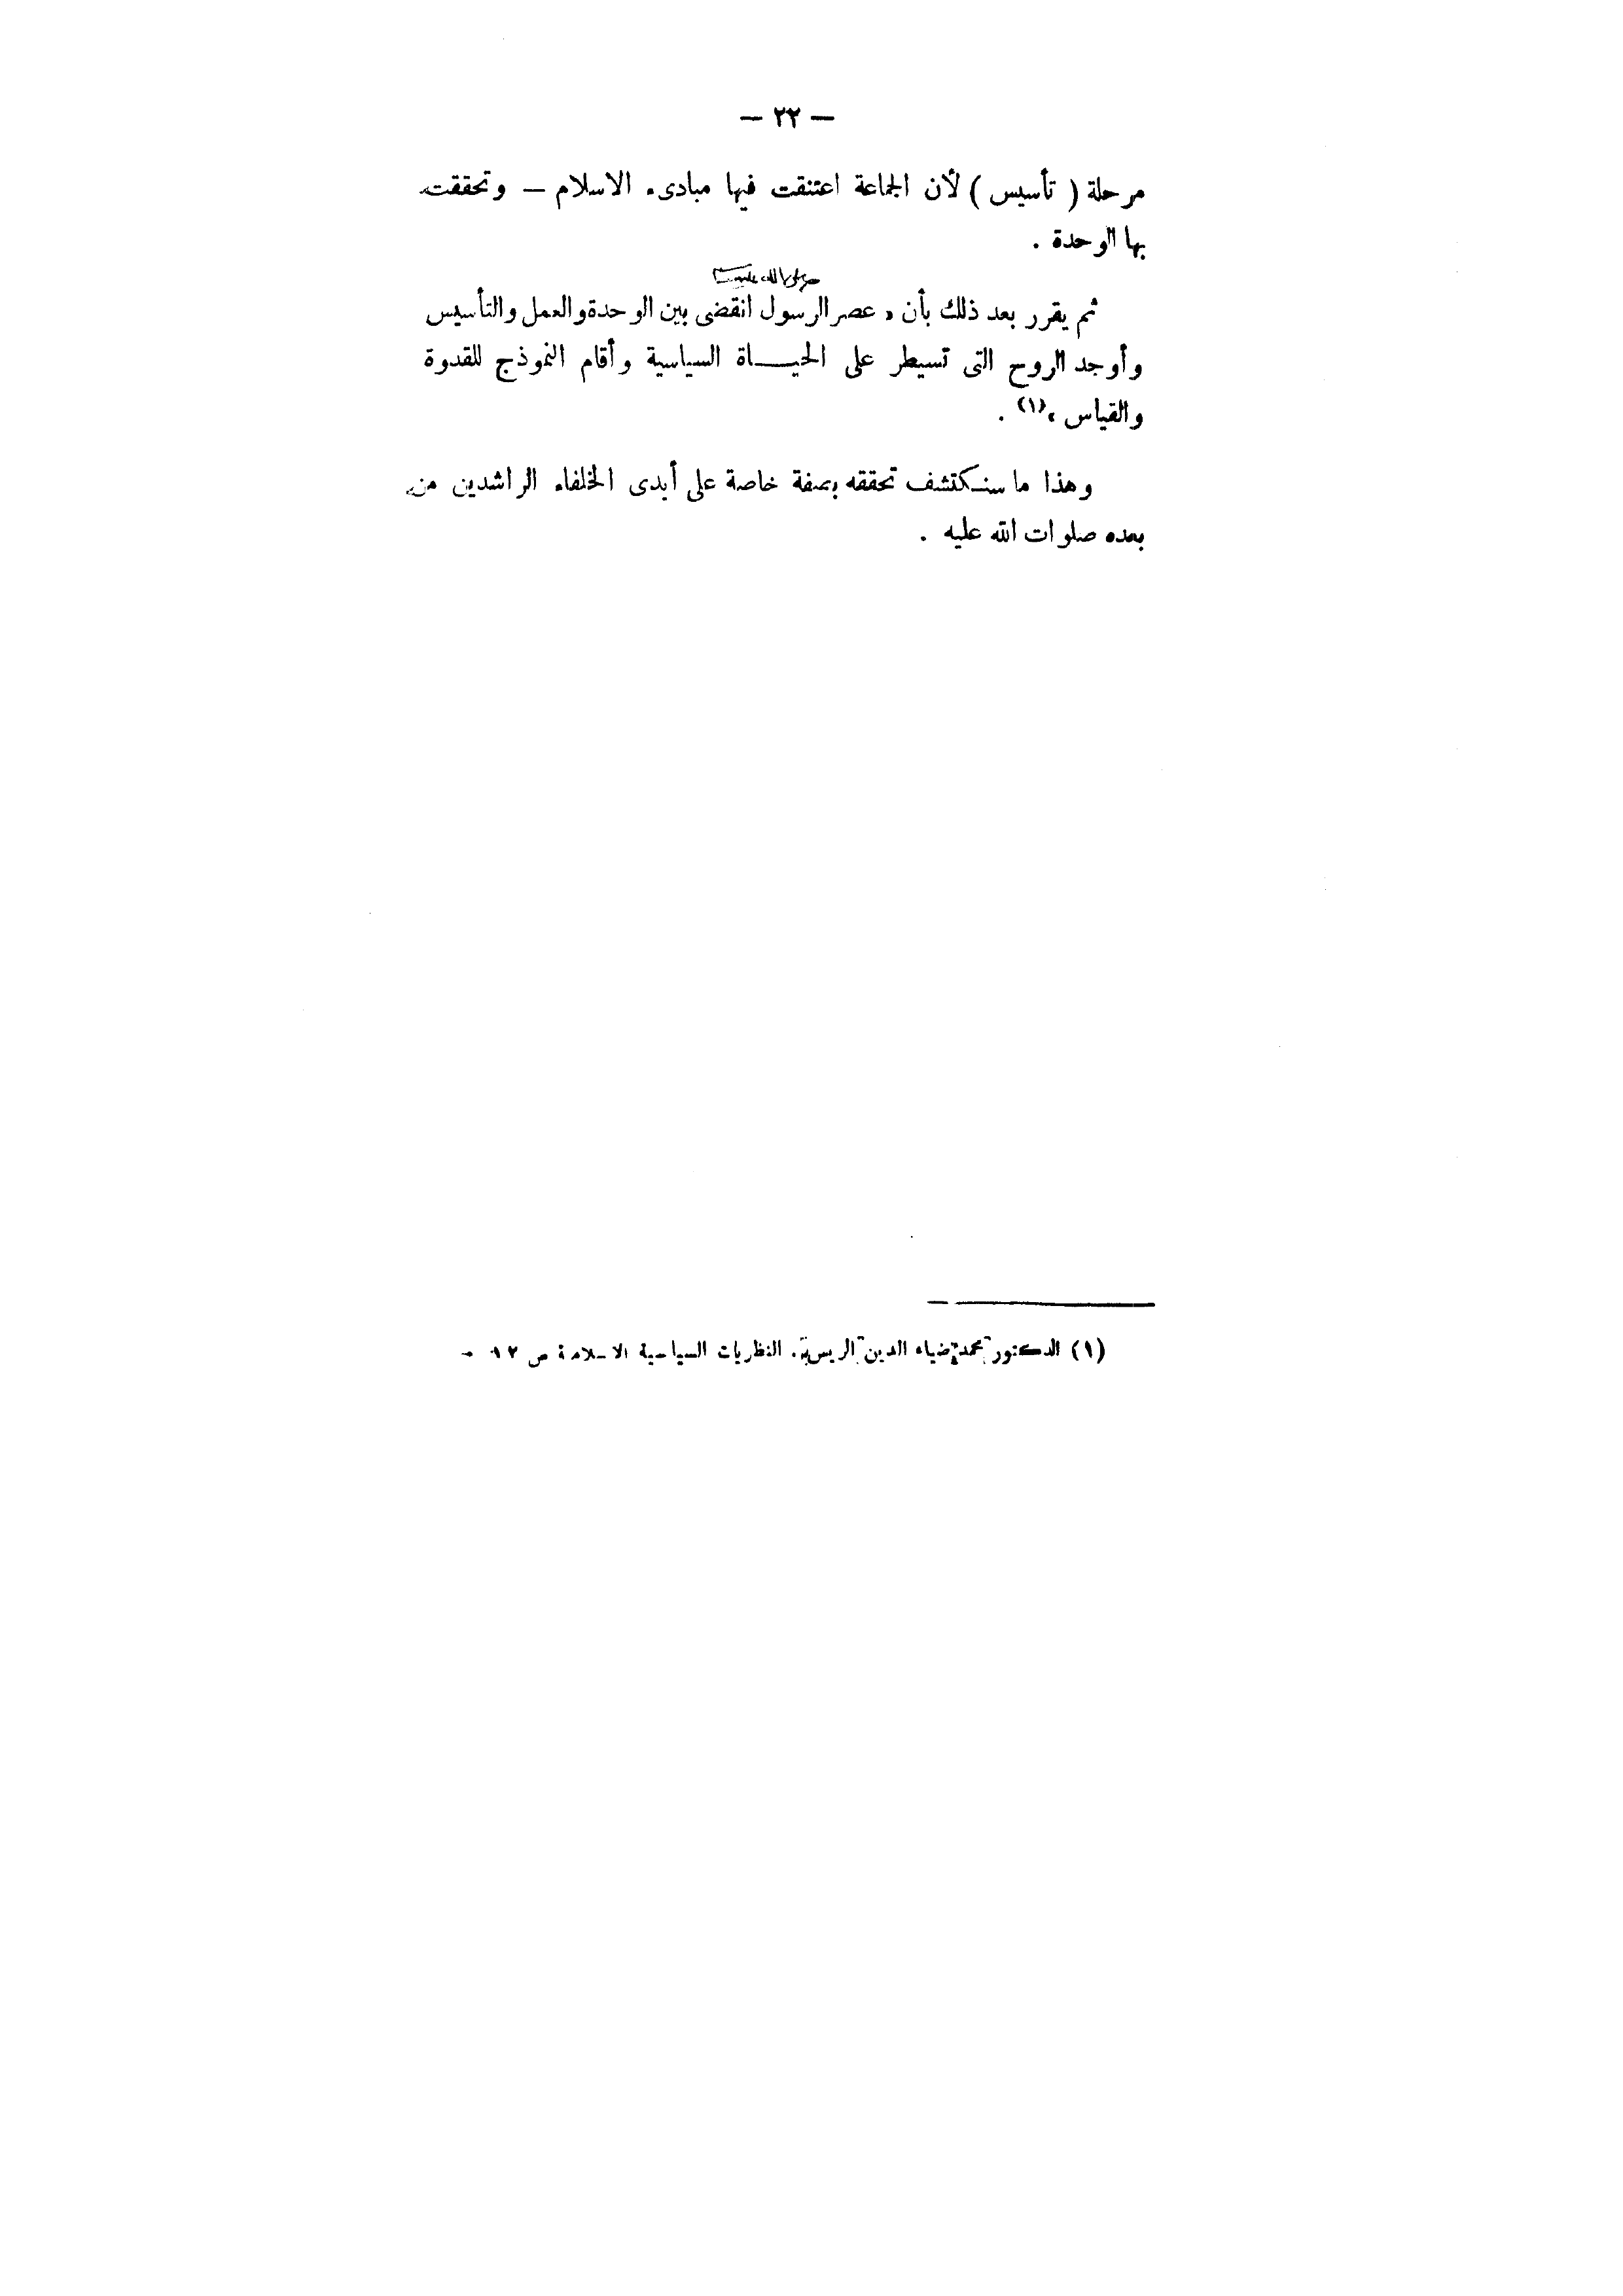 — ٢٢ —
مرحلة ( تأسيس ) لأن الجماعة اعتنقت فيها مبادىء الاسلام — وتحققت
بها الوحدة .
صلى الله عليه
ثم يقرر بعد ذلك بأن « عصر الرسول انقضى بين الوحدة والعمل والتأسيس
وأوجد الروح التى تسيطر على الحيـــاة السياسية وأقام النموذج للقدوة
والقياس »(١) .
وهذا ما سنكتشف تحققه بصفة خاصة على أيدى الخلفاء الراشدين من
بعده صلوات الله عليه .
(١) الدكتور محمد ضياء الدين الريس . النظريات السياسية الاسلامية ص